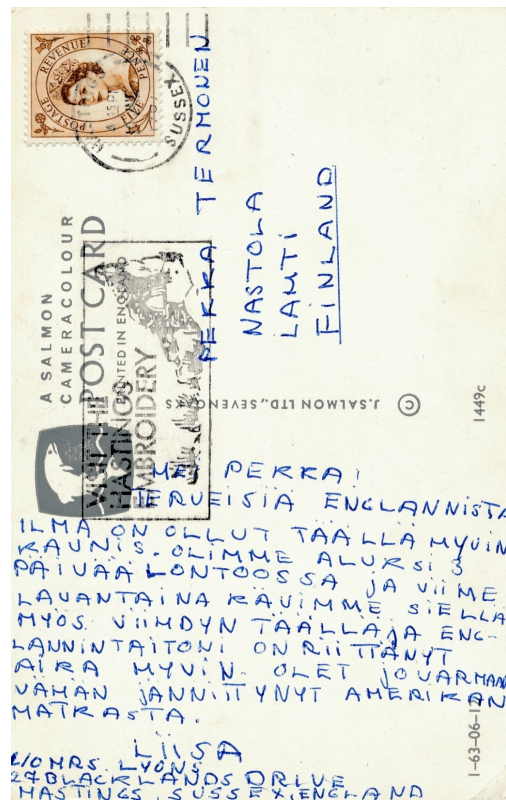 POSTAGE REVENUE
FIVE PENCE
SUSSEX
A SALMON
CAMERACOLOUR
POST CARD
PRINTED IN ENGLAND
VISIT THE
HASTINGS
EMBROIDERY
PEKKA TERMONEN
NASTOLA
LAMTI
FINLAND
J. SALMON LTD., SEVENOAKS ©
1449c
MEI PEKKA!
TERVEISIÄ ENGLANNISTA
ILMA ON OLLUT TÄÄLLÄ MYVIN
KAUNIS. OLIMME ALUKSI 3
PÄIVÄÄ LONTOOSSA JA VIIME
LAUANTAINA KÄVIMME SIELLÄ
MYÖS. VIIHDYN TÄÄLLÄ JA ENG-
LANNINTAITONI ON RIITTÄNYT
AIKA MYVIN. OLET JO VARMAN
VÄHÄN JÄNNITTYNYT AMERIKAN
MATKASTA.
LIISA
C/O MRS. LYONS
27 BLACKLANDS DRIVE
HASTINGS, SUSSEX, ENGLAND